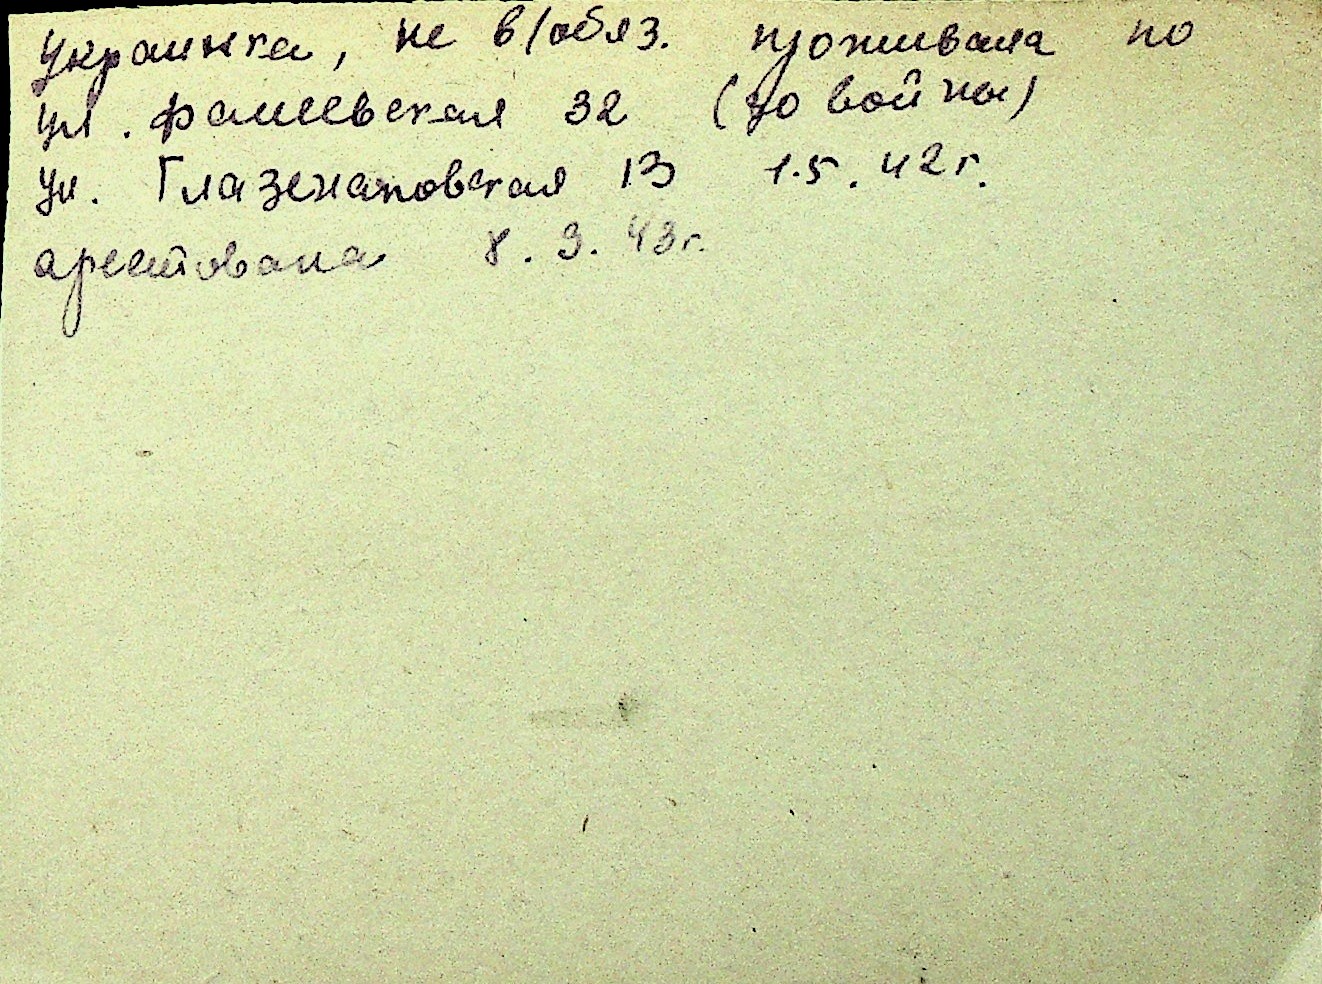 украинка, не в/обяз. проживала по
ул. Фалеевская 32 (до войны)
ул. Глазенаповская 13 1.5.42г.
арестована 8.3.43г.